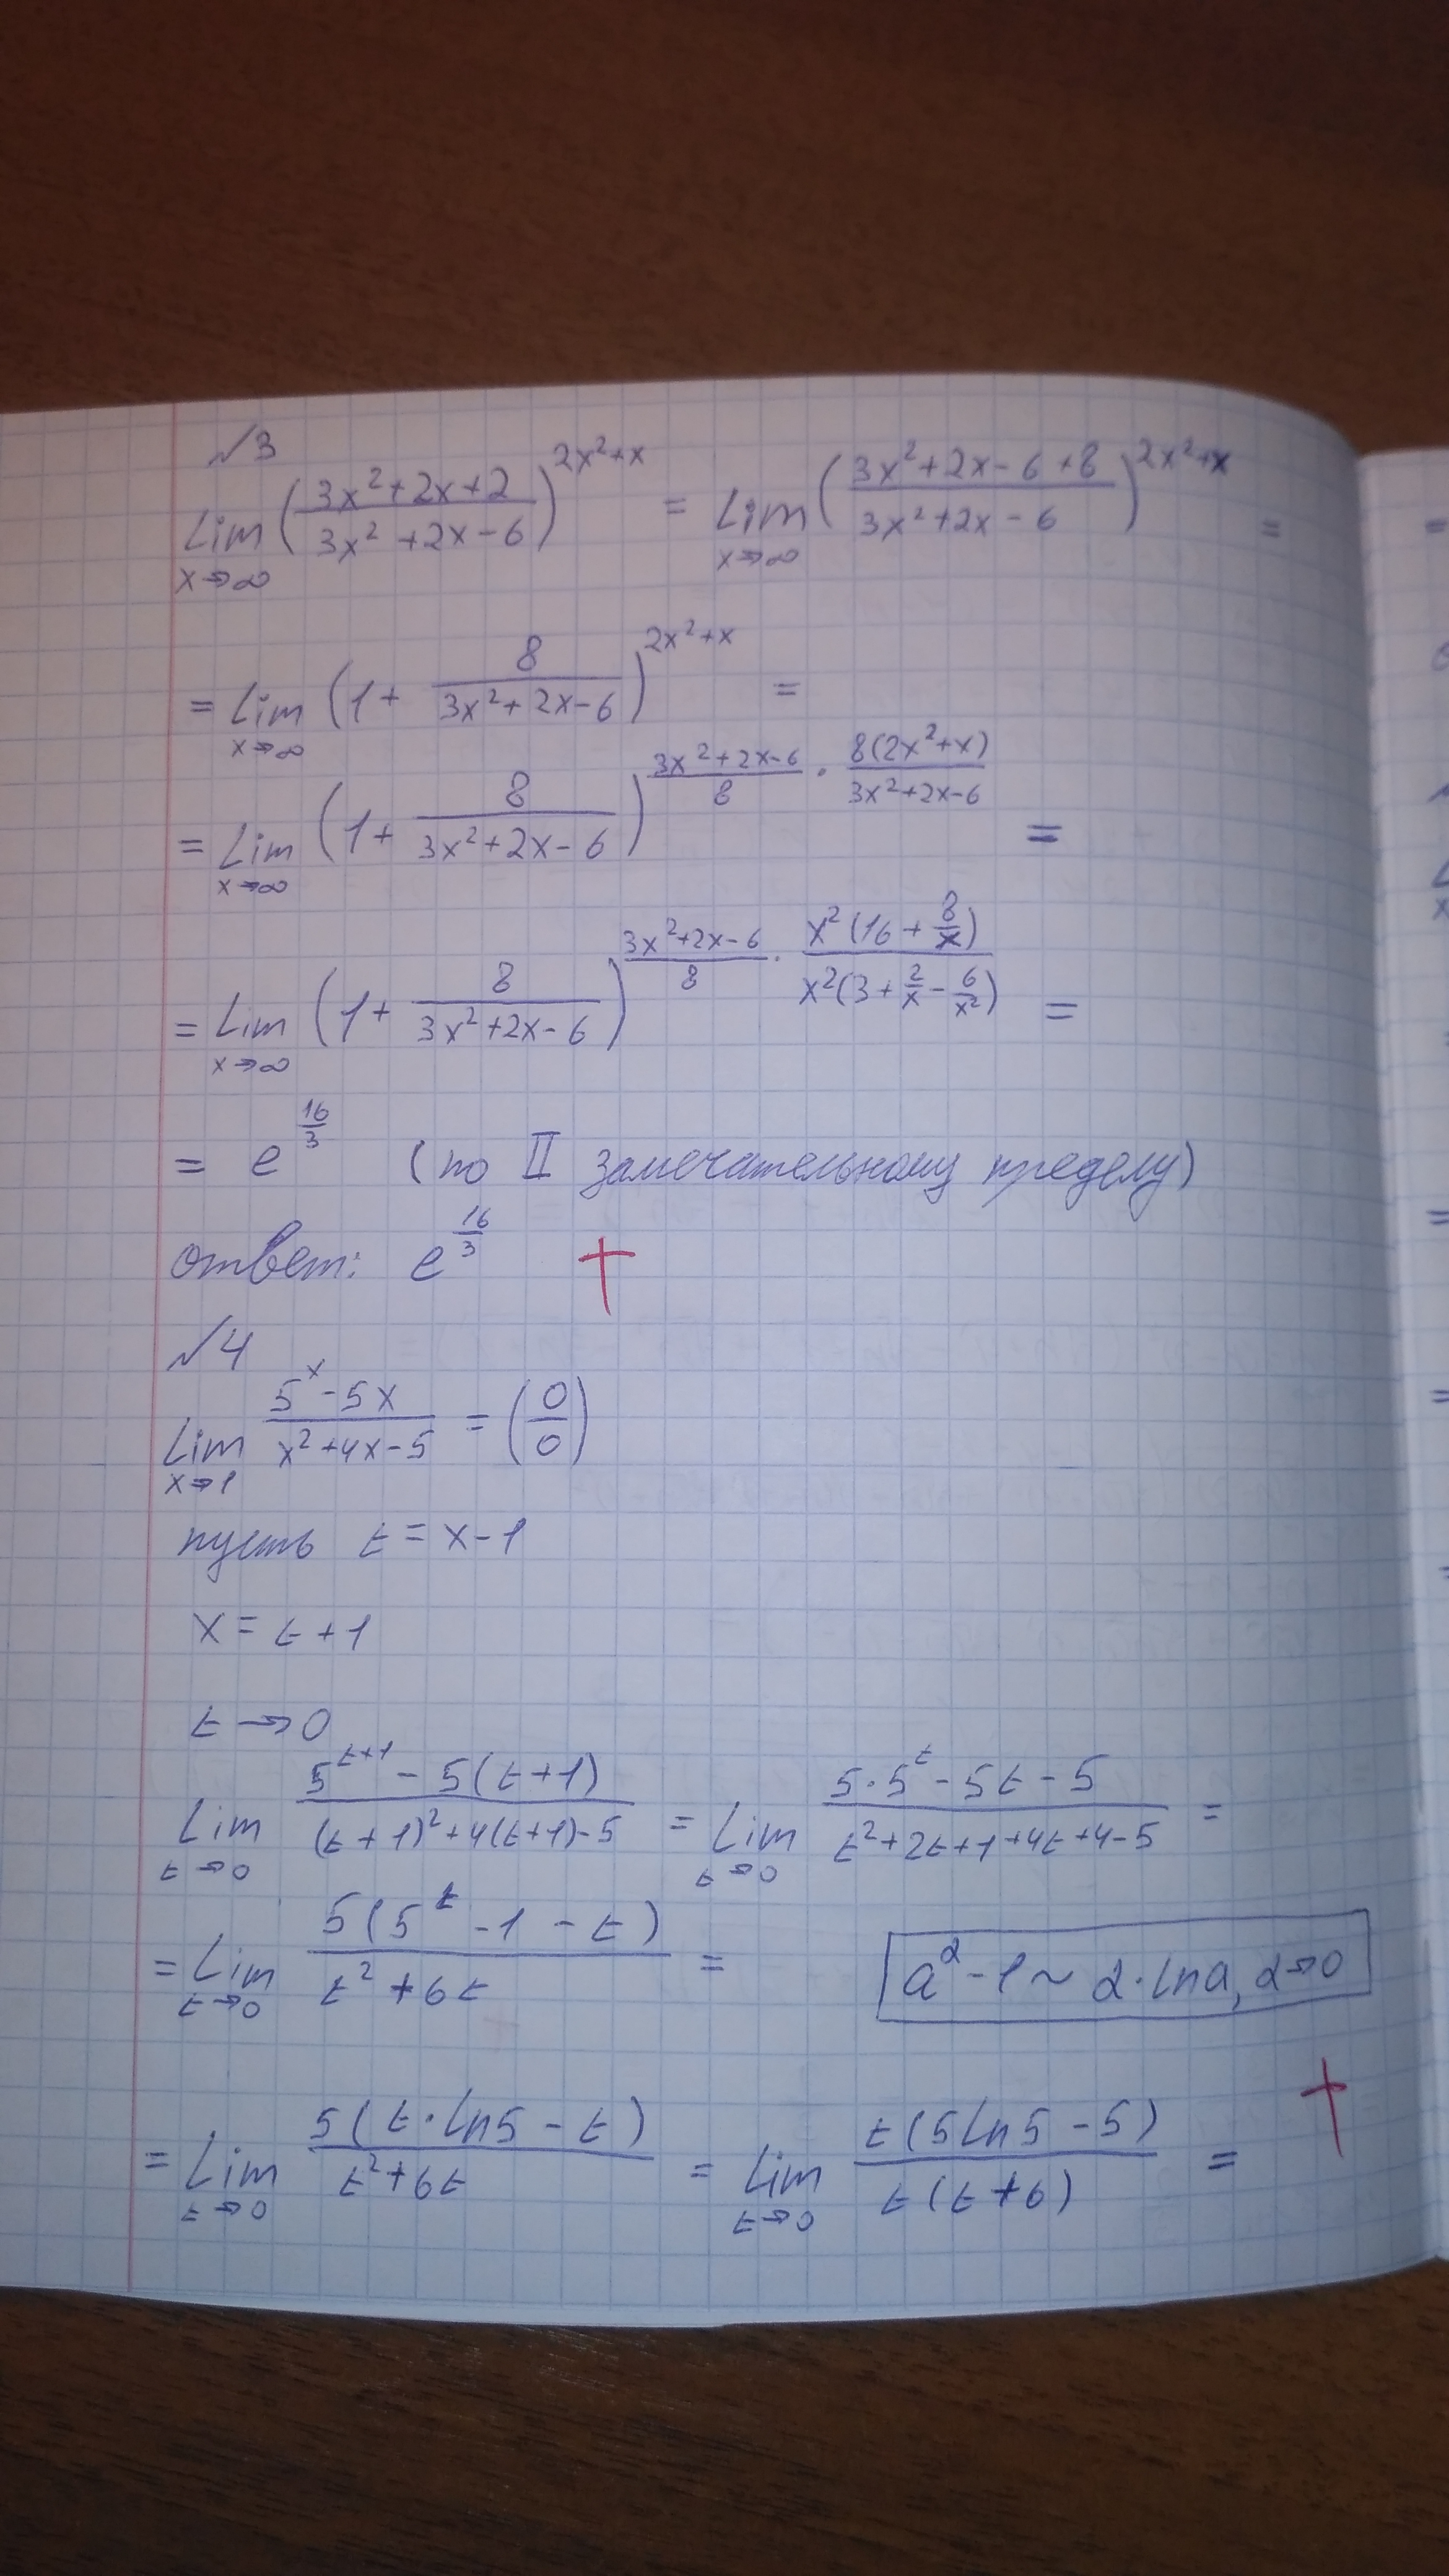 №3
Lim x→∞ ((3x²+2x+2)/(3x²+2x-6))^(2x²+x) = Lim x→∞ ((3x²+2x-6+8)/(3x²+2x-6))^(2x²+x) =
= Lim x→∞ (1+ 8/(3x²+2x-6))^(2x²+x) =
= Lim x→∞ (1+ 8/(3x²+2x-6))^((3x²+2x-6)/8 · 8(2x²+x)/(3x²+2x-6)) =
= Lim x→∞ (1+ 8/(3x²+2x-6))^((3x²+2x-6)/8 · x²(16+8/x)/(x²(3+2/x-6/x²))) =
= e^(16/3) (по II замечательному пределу)
ответ: e^(16/3) +
№4
Lim x→1 (5^x-5x)/(x²+4x-5) = (0/0)
пусть t = x-1
x = t+1
t→0
Lim t→0 (5^(t+1) - 5(t+1))/((t+1)²+4(t+1)-5) = Lim t→0 (5·5^t - 5t - 5)/(t²+2t+1+4t+4-5) =
= Lim t→0 5(5^t - 1 - t)/(t²+6t) = a^α-1 ~ α·lna, α→0
= Lim t→0 5(t·ln5 - t)/(t²+6t) = Lim t→0 t(5ln5 - 5)/(t(t+6)) = +